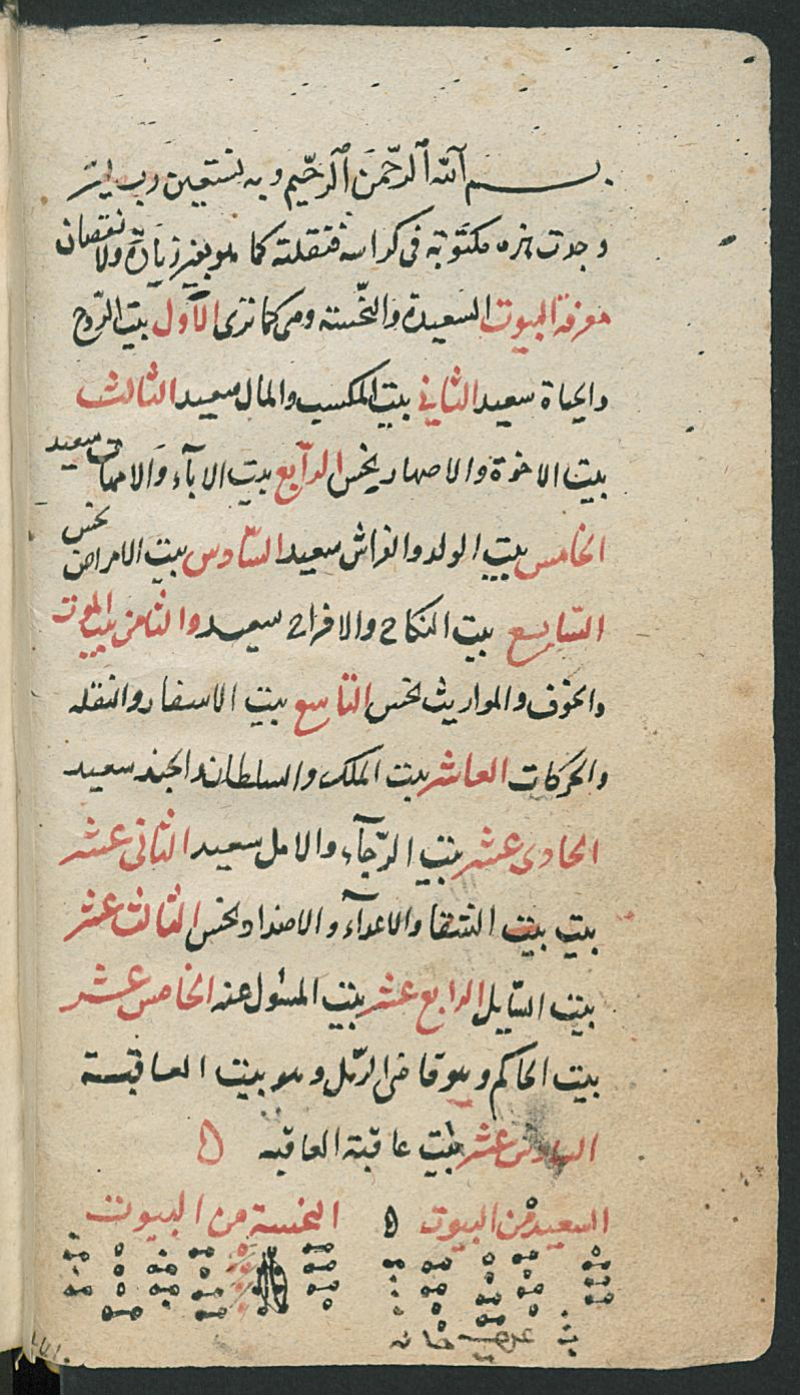 بسم الله الرحمن الرحيم وبه نستعين رب يسر
وجدت هذه مكتوبة في كراسه فنقلته كما هو بغير زيادة ولا نقصان
معرفة البيوت السعيدة والنحسة وهي كما ترى الاول بيت الروح
والحياة سعيد الثاني بيت المكسب والمال سعيد الثالث
بيت الاخوة والاصهار نحس الرابع بيت الابآء والامهات سعيد
الخامس بيت الولد والفراش سعيد السادس بيت الامراض نحس
السابع بيت النكاح والافراح سعيد والثامن بيت الموت
والخوف والمواريث نحس التاسع بيت الاسفار والنقله
والحركات العاشر بيت الملك والسلطان والجند سعيد
الحادى عشر بيت الرجآء والامل سعيد الثانى عشر
بيت بيت الشقا والاعدآء والاضداد نحس الثالث عشر
بيت السايل الرابع عشر بيت المسئول عنه الخامس عشر
بيت الحاكم وهو قاضى الرمل وهو بيت العاقبة
السادس عشر بيت عاقبة العاقبه ه
السعيد من البيوت ه النحسة من البيوت